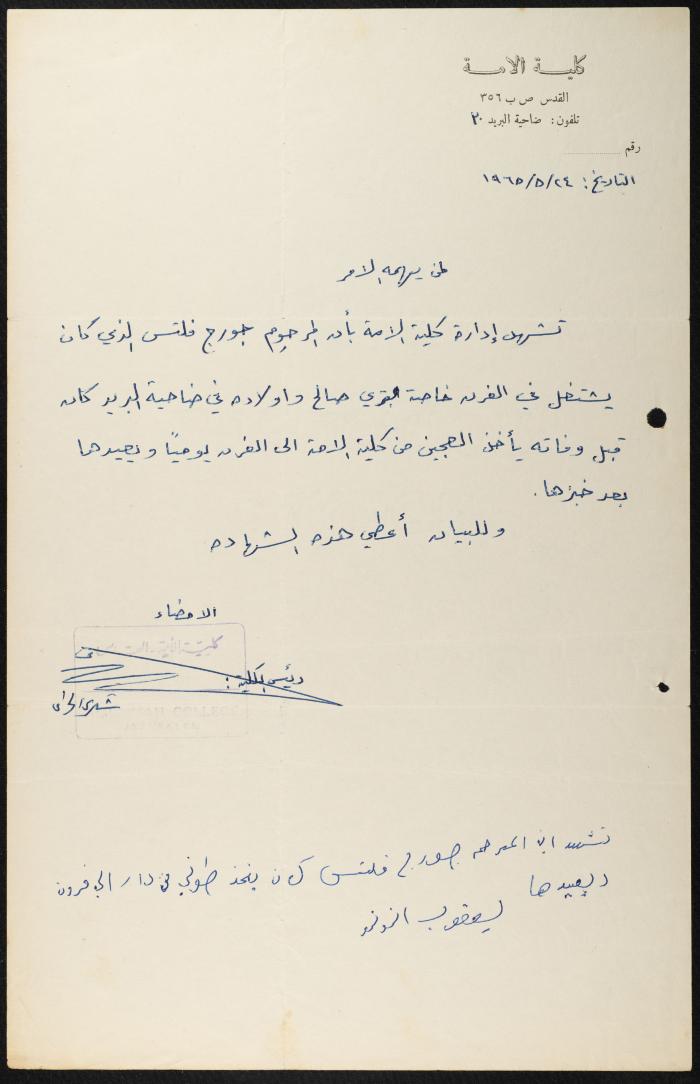 كلية الامة
القدس ص ب ٣٥٦
تلفون: ضاحية البريد ٢٠
رقم
التاريخ: ١٩٦٥/٥/٢٤
لمن يهمه الامر
تشهد إدارة كلية الامة بأن المرحوم جورج فلتس الذي كان
يشتغل في الفرن خاصة صالح واولاده في ضاحية البريد كان
قبل وفاته يأخذ العجين من كلية الامة الى الفرن يومياً ويعيدها
بعد خبزها.
وللبيان أعطي هذه الشهاده
الامضاء
كلية الأمة
رئيس الكلية:
شكري
COLLEGE
تشهد ان المرحوم جورج فلتس كان ياخذ من دار الى فرون
ويعيدها
يعقوب